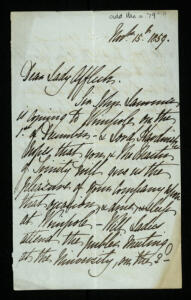 Add ms a 79
Novr. 15th 1859.
Dear Lady Affleck,
Sir John Lawrence
is coming to Wimpole, on the
1st of December - & Lord Hardwicke
hopes that you, & the Master
of Trinity will give us the
pleasure of your Company upon
that occasion, & dine & sleep
at Wimpole - My Ladies
attend the public meeting
at the University, on the 2-